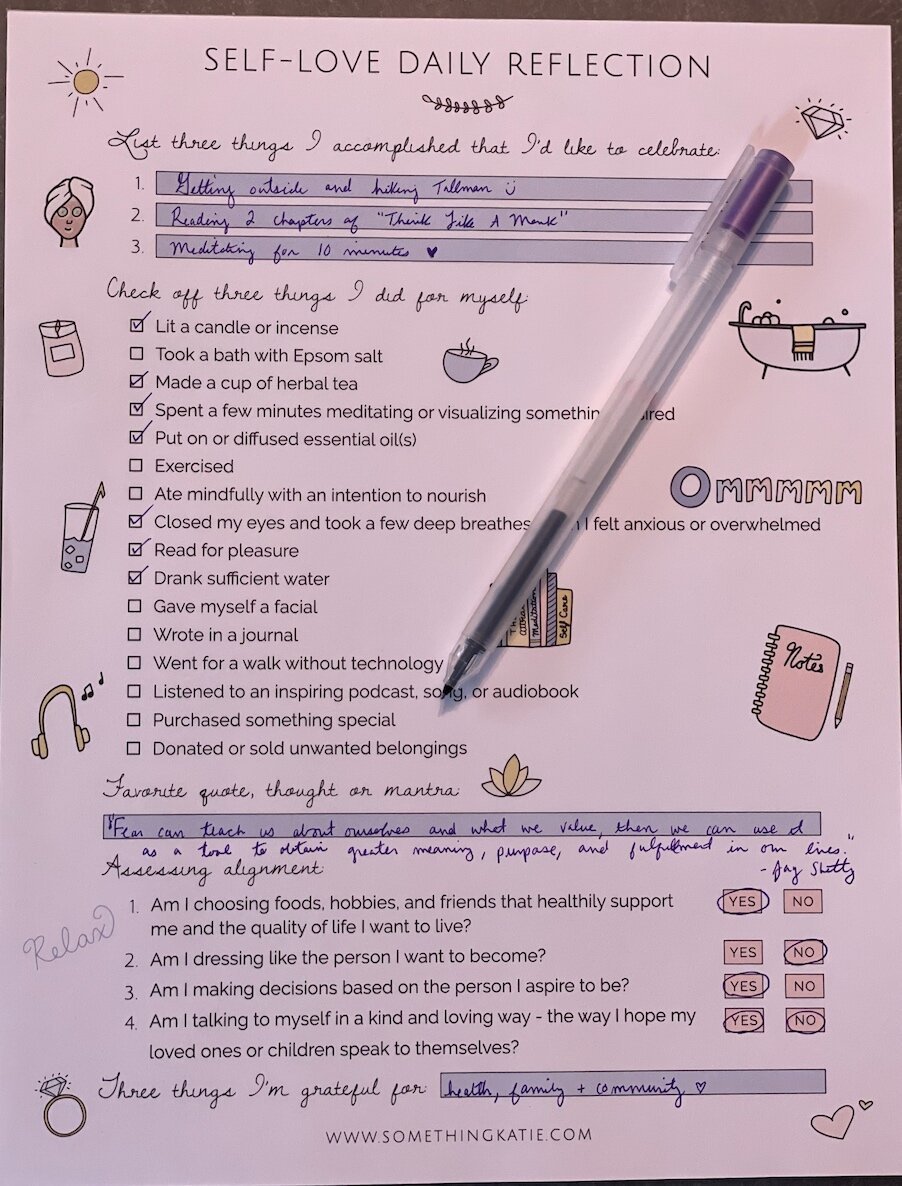 SELF-LOVE DAILY REFLECTION
List three things I accomplished that I'd like to celebrate:
1. Getting outside and hiking Tallman
2. Reading 2 chapters of "Think Like A Monk"
3. Meditating for 10 minutes ♥
Check off three things I did for myself:
Lit a candle or incense
Took a bath with Epsom salt
Made a cup of herbal tea
Spent a few minutes meditating or visualizing
Put on or diffused essential oil(s)
Exercised
Ommmmm
Ate mindfully with an intention to nourish
Closed my eyes and took a few deep breathes I felt anxious or overwhelmed
Read for pleasure
Drank sufficient water
Gave myself a facial
Meditation
Self Care
Wrote in a journal
Notes
Went for a walk without technology
Listened to an inspiring podcast, song, or audiobook
Purchased something special
Donated or sold unwanted belongings
Favorite quote, thought or mantra:
"Fear can teach us about ourselves and what we value, then we can use it
as a tool to obtain greater meaning, purpose, and fulfillment in our lives."
- Jay Shetty
Assessing alignment:
1. Am I choosing foods, hobbies, and friends that healthily support YES NO
me and the quality of life I want to live?
Relax
2. Am I dressing like the person I want to become? YES NO
3. Am I making decisions based on the person I aspire to be? YES NO
4. Am I talking to myself in a kind and loving way - the way I hope my YES NO
loved ones or children speak to themselves?
Three things I'm grateful for: health, family + community ♡
WWW.SOMETHINGKATIE.COM